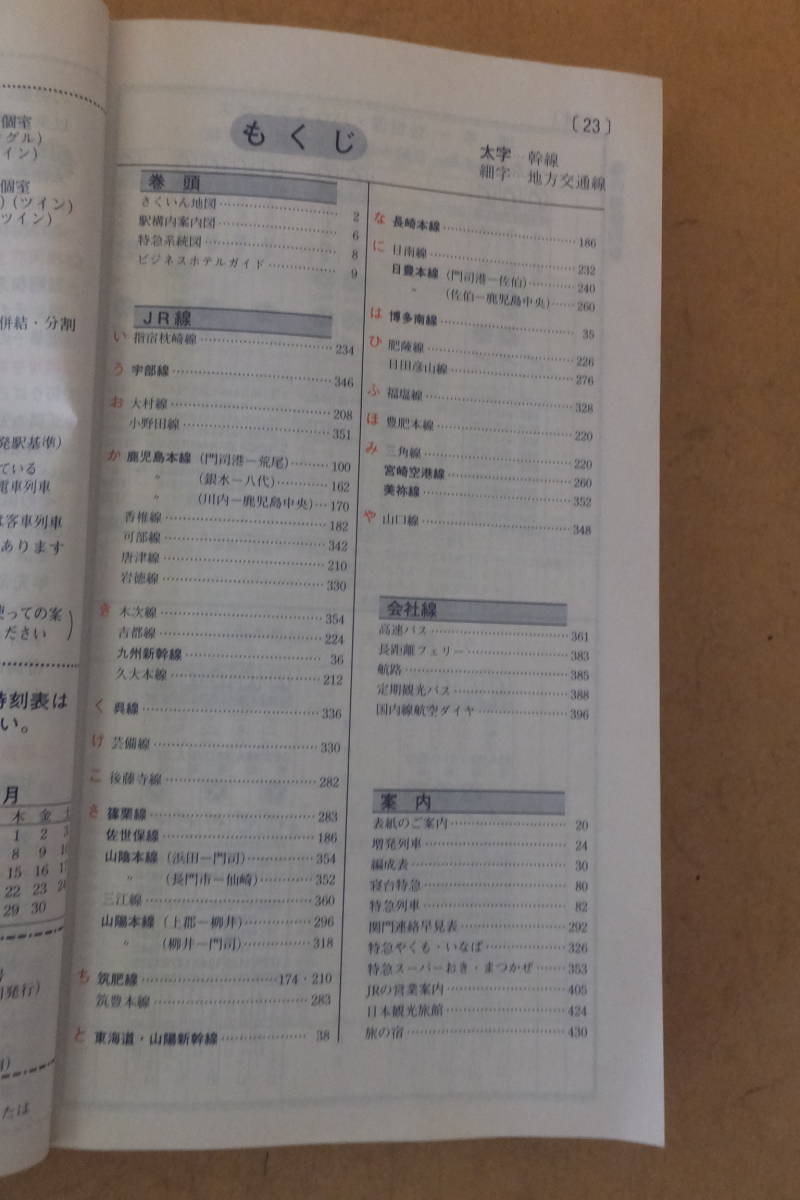 個室
グル)
イン)
個室
)(ツイン)
ツイン)
併結・分割
発駅基準)
ている
電車列車
は客車列車
あります
使っての案
ださい
時刻表は
い。
月
木 金
1 2 3
8 9 10
15 16 17
22 23 24
29 30
号
月発行)
たは
〔23〕
もくじ
太字…幹線
細字…地方交通線
巻頭
さくいん地図 2
駅構内案内図 6
特急系統図 8
ビジネスホテルガイド 9
JR線
い 指宿枕崎線 234
う 宇部線 346
お 大村線 208
小野田線 351
か 鹿児島本線(門司港―荒尾) 100
〃 (銀水―八代) 162
〃 (川内―鹿児島中央) 170
香椎線 182
可部線 342
唐津線 210
岩徳線 330
き 木次線 354
吉都線 224
九州新幹線 36
久大本線 212
く 呉線 336
げ 芸備線 330
こ 後藤寺線 282
さ 篠栗線 283
佐世保線 186
山陰本線(浜田―門司) 354
〃 (長門市―仙崎) 352
三江線 360
山陽本線(上郡―柳井) 296
〃 (柳井―門司) 318
ち 筑肥線 174・210
筑豊本線 283
と 東海道・山陽新幹線 38
な 長崎本線 186
に 日南線 232
日豊本線(門司港―佐伯) 240
〃 (佐伯―鹿児島中央) 260
は 博多南線 35
ひ 肥薩線 226
日田彦山線 276
ふ 福塩線 328
ほ 豊肥本線 220
み 三角線 220
宮崎空港線 260
美祢線 352
や 山口線 348
会社線
高速バス 361
長距離フェリー 383
航路 385
定期観光バス 388
国内線航空ダイヤ 396
案内
表紙のご案内 20
増発列車 24
編成表 30
寝台特急 80
特急列車 82
関門連絡早見表 292
特急やくも・いなば 326
特急スーパーおき・まつかぜ 353
JRの営業案内 405
日本観光旅館 424
旅の宿 430